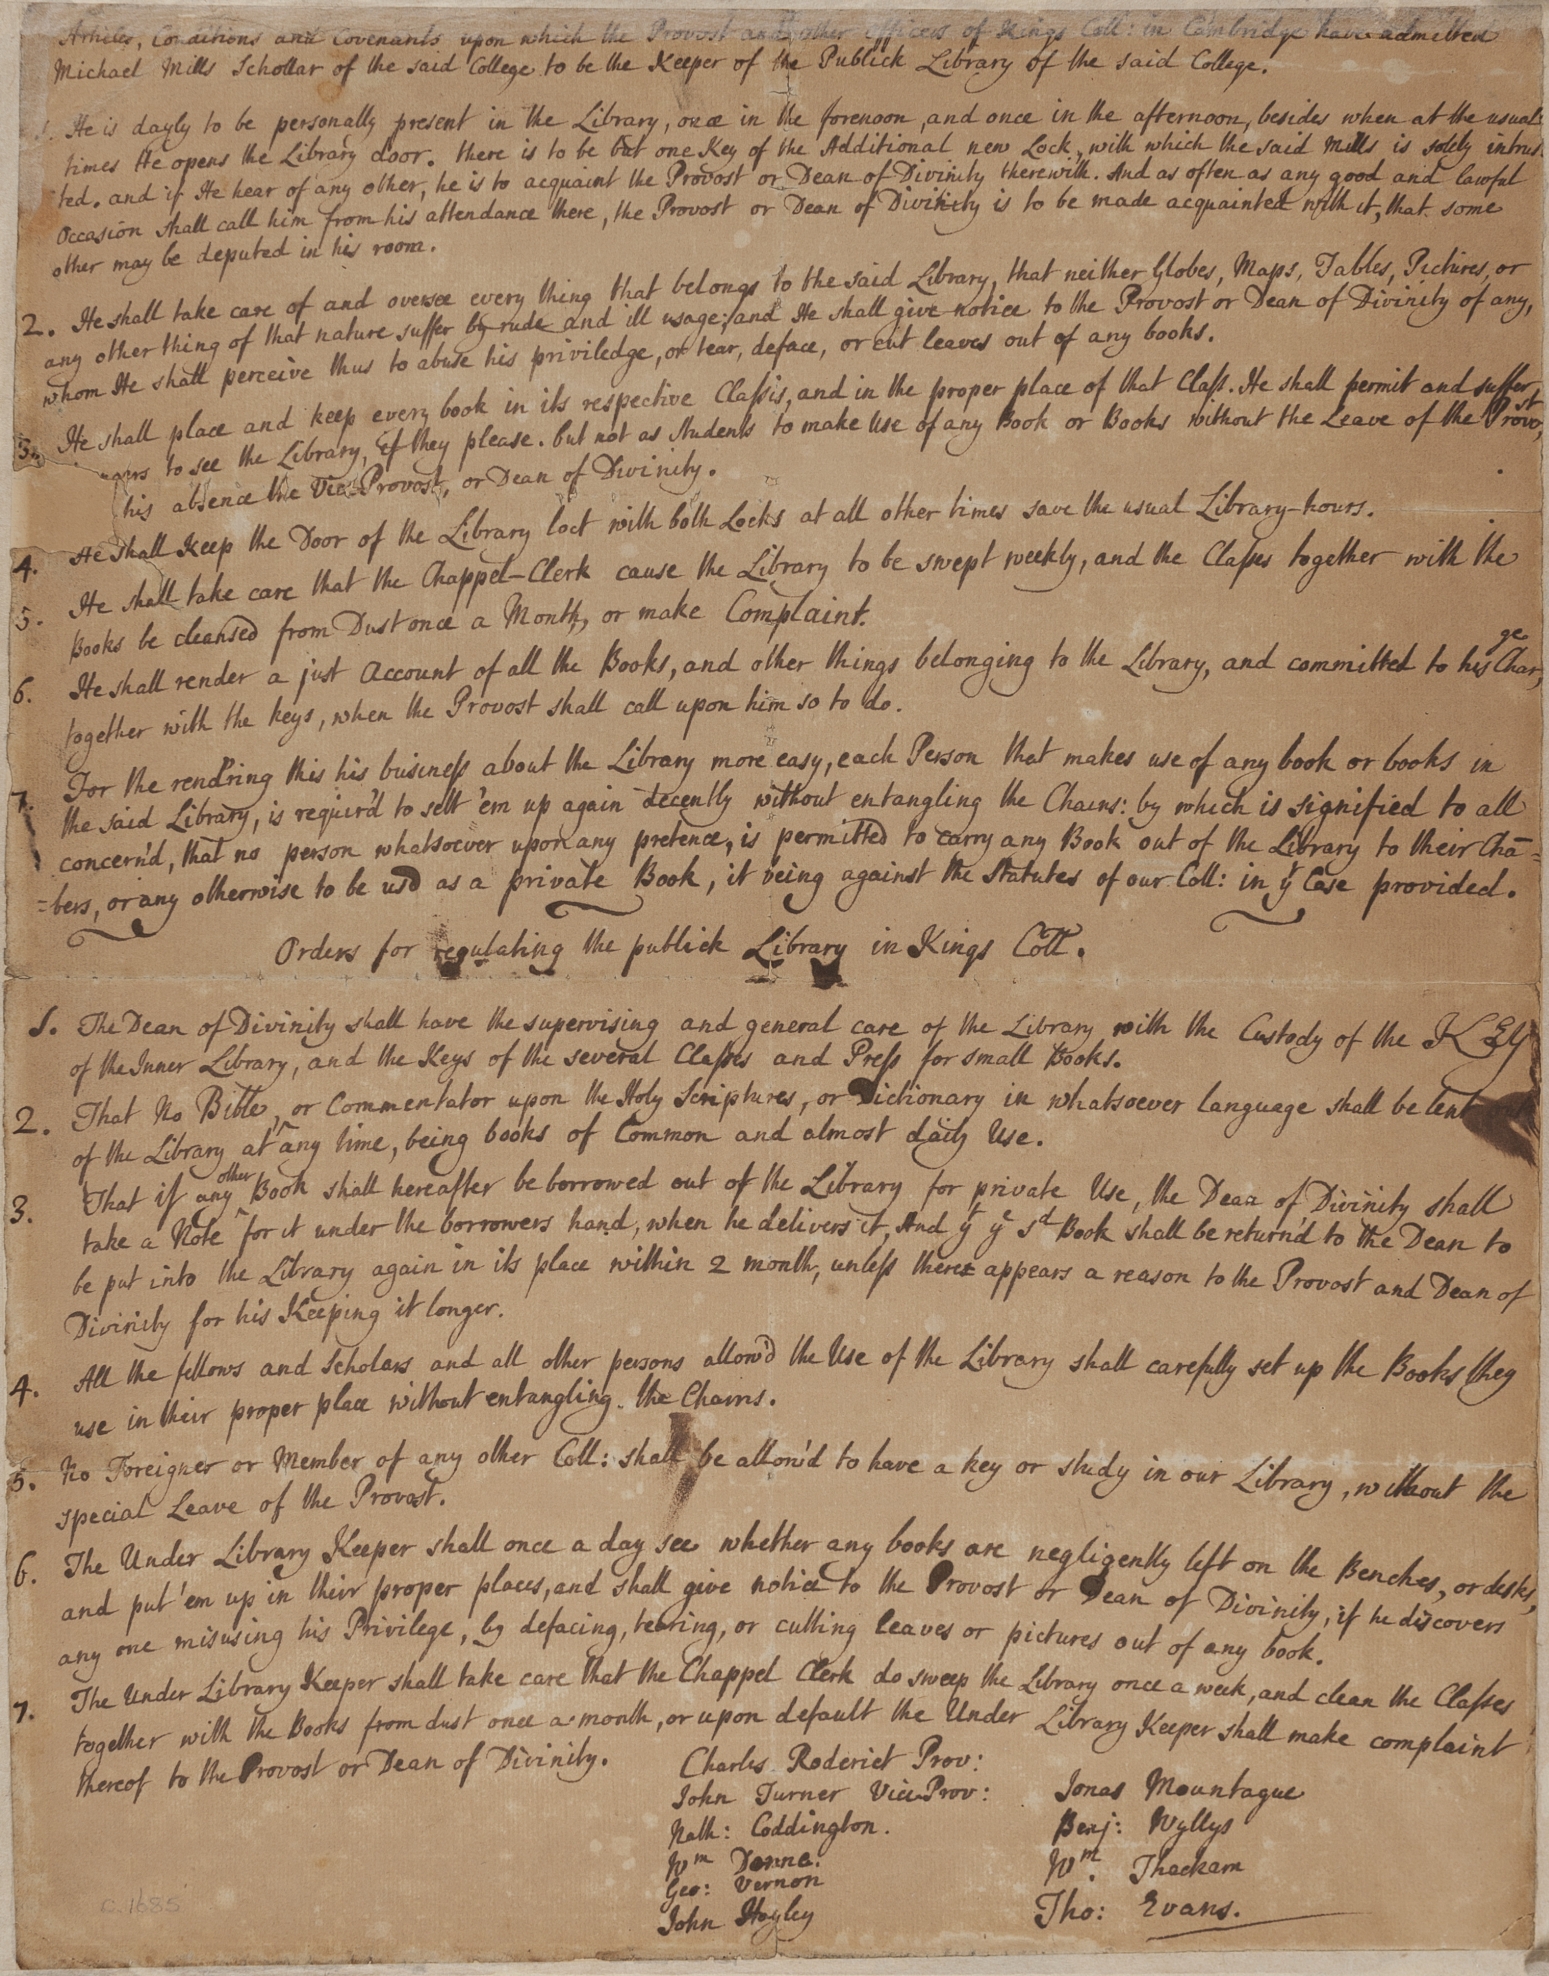 Articles, Conditions and Covenants upon which the Provost and other Officers of Kings Coll: in Cambridge have admitted
Michael Mills Schollar of the said College to be the Keeper of the Publick Library of the said College.
1. He is dayly to be personally present in the Library, once in the forenoon, and once in the afternoon, besides when at the usual
times He opens the Library door. there is to be but one Key of the Additional new Lock, with which the said Mills is solely intrus
ted. and if He hear of any other, he is to acquaint the Provost or Dean of Divinity therewith. And as often as any good and lawful
Occasion shall call him from his attendance there, the Provost or Dean of Divinity is to be made acquainted with it, that some
other may be deputed in his room.
2. He shall take care of and oversee every thing that belongs to the said Library, that neither Globes, Maps, Tables, Pictures, or
any other thing of that nature suffer by rude and ill usage; and He shall give notice to the Provost or Dean of Divinity of any,
whom He shall perceive thus to abuse his priviledge, or tear, deface, or cut leaves out of any books.
3. He shall place and keep every book in its respective Classis, and in the proper place of that Class. He shall permit and suffer
to see the Library, if they please. but not as Students to make Use of any Book or Books without the Leave of the Provost,
his absence the Vice-Provost, or Dean of Divinity.
4. He shall Keep the Door of the Library loct with both Locks at all other times save the usual Library-hours.
5. He shall take care that the Chappel-Clerk cause the Library to be swept weekly, and the Classes together with the
Books be cleansed from Dust once a Month, or make Complaint.
6. He shall render a just Account of all the Books, and other things belonging to the Library, and committed to his Charge,
together with the keys, when the Provost shall call upon him so to do.
7. For the rend'ring this his business about the Library more easy, each Person that makes use of any book or books in
the said Library, is requir'd to sett 'em up again decently without entangling the Chains: by which is signified to all
concern'd, that no person whatsoever upon any pretence, is permitted to carry any Book out of the Library to their Chā=
=bers, or any otherwise to be usd as a private Book, it being against the Statutes of our Coll: in yt Case provided.
Orders for regulating the publick Library in Kings Coll.
1. The Dean of Divinity shall have the supervising and general care of the Library with the Custody of the KEY
of the Inner Library, and the Keys of the several Classes and Press for small Books.
2. That No Bible, or Commentator upon the Holy Scriptures, or Dictionary in whatsoever language shall be lent
of the Library at any time, being books of Common and almost daily Use.
3. That if any other Book shall hereafter be borrowed out of the Library for private Use, the Dean of Divinity shall
take a Note for it under the borrowers hand, when he delivers it, And yt ye sd Book shall be return'd to the Dean to
be put into the Library again in its place within 2 month, unless there appears a reason to the Provost and Dean of
Divinity for his Keeping it longer.
4. All the fellows and Scholars and all other persons allow'd the Use of the Library shall carefully set up the Books they
use in their proper place without entangling the Chains.
5. No Foreigner or Member of any other Coll: shall be allow'd to have a key or study in our Library, without the
special Leave of the Provost.
6. The Under Library Keeper shall once a day see whether any books are negligently left on the Benches, or desks,
and put 'em up in their proper places, and shall give notice to the Provost or Dean of Divinity, if he discovers
any one misusing his Privilege, by defacing, tearing, or cutting leaves or pictures out of any book.
7. The Under Library Keeper shall take care that the Chappel Clerk do sweep the Library once a week, and clean the Classes
together with the Books from dust once a month, or upon default the Under Library Keeper shall make complaint
thereof to the Provost or Dean of Divinity.
Charles Roderick Prov:
John Turner Vice Prov:
Nath: Coddington.
Wm Donne.
Geo: Vernon
John Hayley
Jonas Mountague
Benj: Wyllys
Wm. Thackam
Tho: Evans.
c. 1685